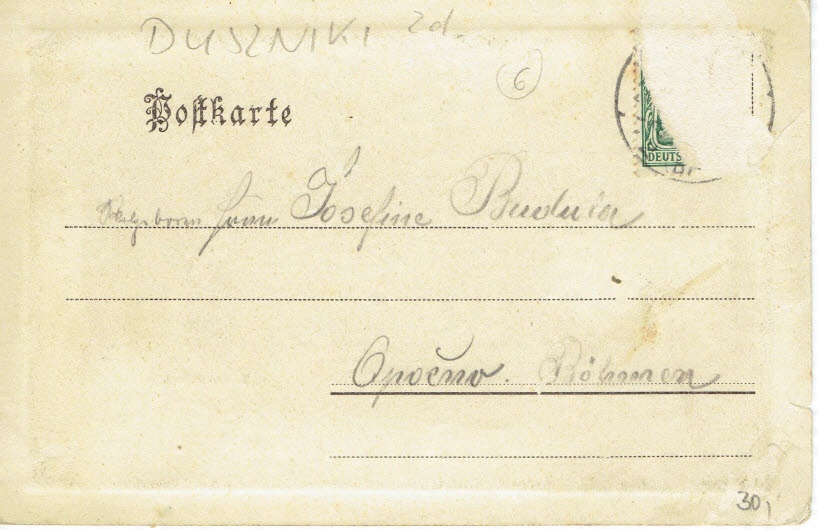 DUSZNIKI zd.
6
Postkarte
DEUTS
Wohlgeboren Frau Josefine Budula
Opočno. Böhmen
30,